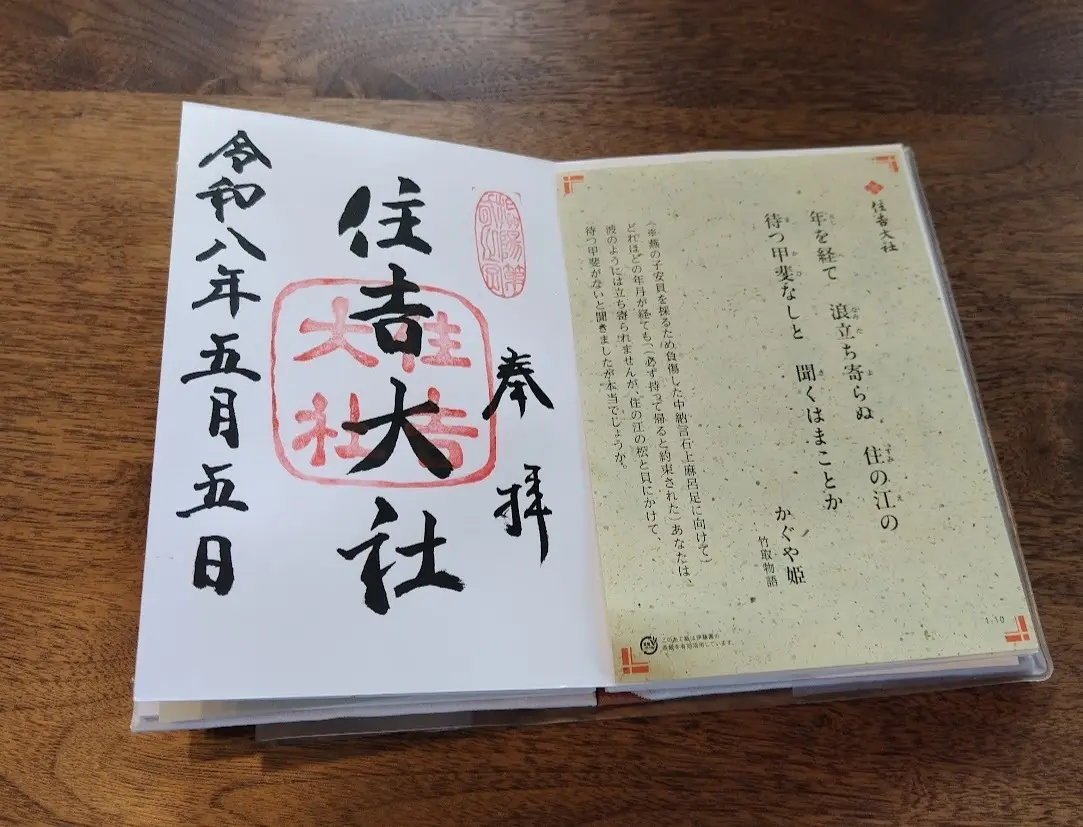 住吉大社
年を経て 浪立ち寄らぬ 住の江の
待つ甲斐なしと 聞くはまことか
かぐや姫
竹取物語
(※燕の子安貝を採るため負傷した中納言石上麻呂足に向けて)
どれほどの年月が経ても、(必ず持って帰ると約束された)あなたは、
波のようには立ち寄られませんが、住の江の松と貝にかけて、
待つ甲斐がないと聞きましたが本当でしょうか。
1-10
このあく紙は伊藤園の
茶殻を有効活用しています。
奉拝
住吉大社
住吉大社
令和八年五月五日